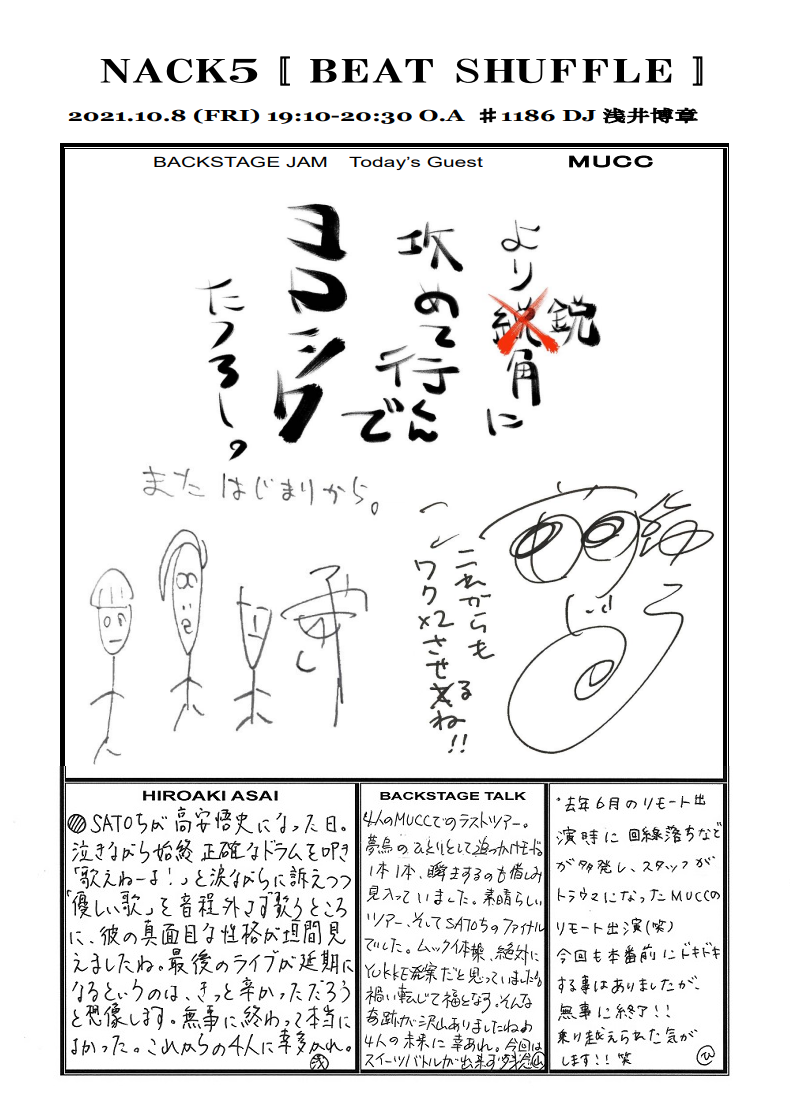 NACK5 〚 BEAT SHUFFLE 〛
2021.10.8 (FRI) 19:10-20:30 O.A ♯1186 DJ 浅井博章
BACKSTAGE JAM Today's Guest MUCC
より
鋭角に
攻めて行くんで
ヨロシク
たつろう。
またはじまりから。
これからも
ワク×2させるね!!
HIROAKI ASAI
SATOちが高安悟史になった日。
泣きながら始終正確なドラムを叩き
「歌えねーよ!」と涙ながらに訴えつつ
「優しい歌」を音程外さず歌うところ
に、彼の真面目な性格が垣間見
えましたね。最後のライブが延期に
なるというのは、きっと辛かっただろう
と想像します。無事に終わって本当に
よかった。これからの4人に幸多かれ。
BACKSTAGE TALK
4人のMUCCでのラストツアー。
夢烏のひとりとして追っかけモードで
1本1本、瞬きするのも惜しみ
見入っていました。素晴らしい
ツアー、そしてSATOちのファイナル
でした。ムック体操、絶対に
YUKKE発案だと思っていましたも
禍い転じて福となす。そんな
奇跡が沢山ありましたねわ
4人の未来に幸あれ。今回は
スイーツバトルが出来ず残念 山
・去年6月のリモート出
演時に回線落ちなど
が多発し、スタッフが
トラウマになったMUCCの
リモート出演(笑)
今回も本番前にドキドキ
する事はありましたが、
無事に終了!!
乗り越えられた気が
します!!笑 ひ